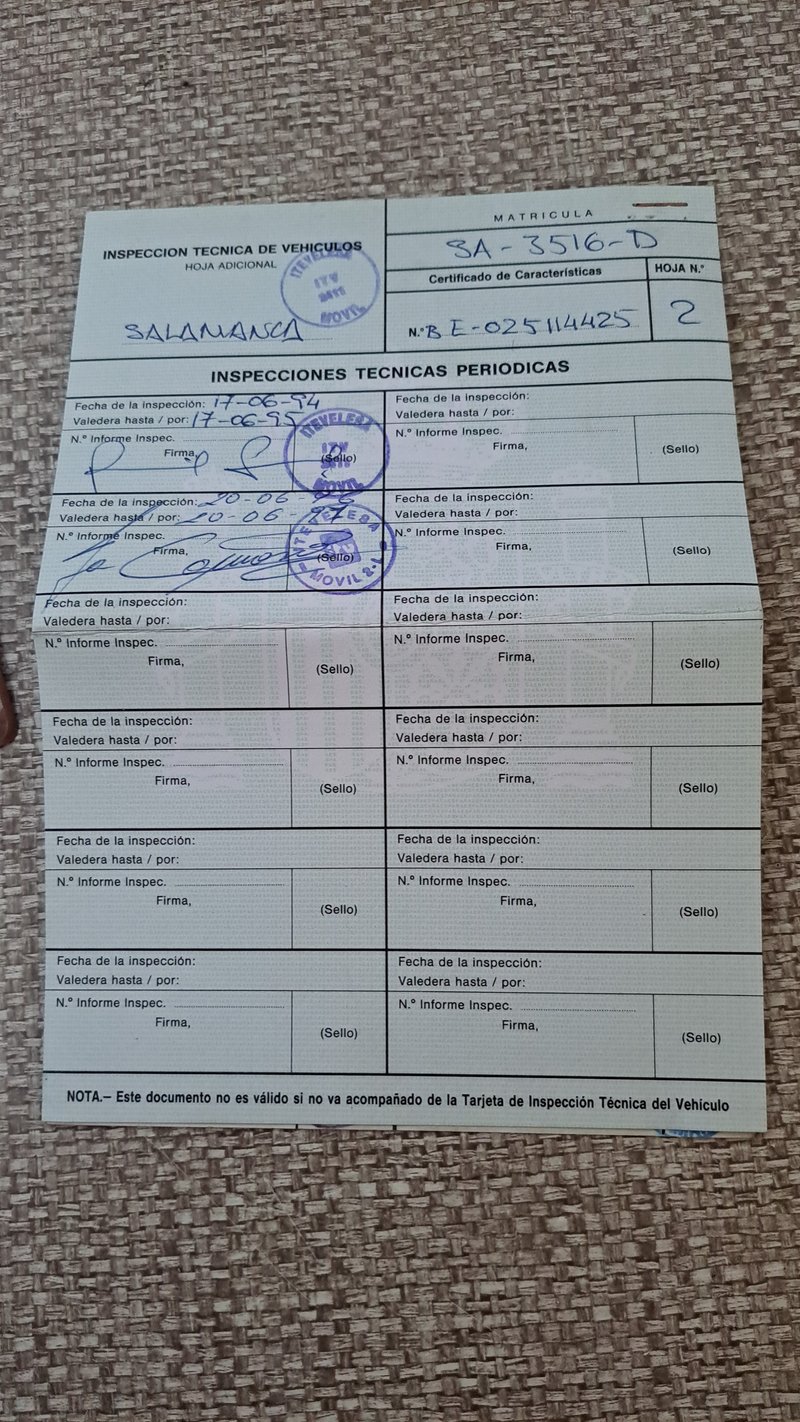 INSPECCION TECNICA DE VEHICULOS
HOJA ADICIONAL
ITEVELESA
ITV
MOVIL
SALAMANCA
MATRICULA
SA-3516-D
Certificado de Características
N.º BE-025114425
HOJA N.º
2
INSPECCIONES TECNICAS PERIODICAS
Fecha de la inspección: 17-06-94
Valedera hasta / por: 17-06-95
N.º Informe Inspec.
Firma,
(Sello)
ITEVELESA
ITV
MOVIL
Fecha de la inspección:
Valedera hasta / por:
N.º Informe Inspec.
Firma,
(Sello)
Fecha de la inspección: 20-06-96
Valedera hasta / por: 20-06-97
N.º Informe Inspec.
Firma,
(Sello)
ITEVELESA
MOVIL 2
Fecha de la inspección:
Valedera hasta / por:
N.º Informe Inspec.
Firma,
(Sello)
Fecha de la inspección:
Valedera hasta / por:
N.º Informe Inspec.
Firma,
(Sello)
Fecha de la inspección:
Valedera hasta / por:
N.º Informe Inspec.
Firma,
(Sello)
Fecha de la inspección:
Valedera hasta / por:
N.º Informe Inspec.
Firma,
(Sello)
Fecha de la inspección:
Valedera hasta / por:
N.º Informe Inspec.
Firma,
(Sello)
Fecha de la inspección:
Valedera hasta / por:
N.º Informe Inspec.
Firma,
(Sello)
Fecha de la inspección:
Valedera hasta / por:
N.º Informe Inspec.
Firma,
(Sello)
Fecha de la inspección:
Valedera hasta / por:
N.º Informe Inspec.
Firma,
(Sello)
Fecha de la inspección:
Valedera hasta / por:
N.º Informe Inspec.
Firma,
(Sello)
NOTA.– Este documento no es válido si no va acompañado de la Tarjeta de Inspección Técnica del Vehículo